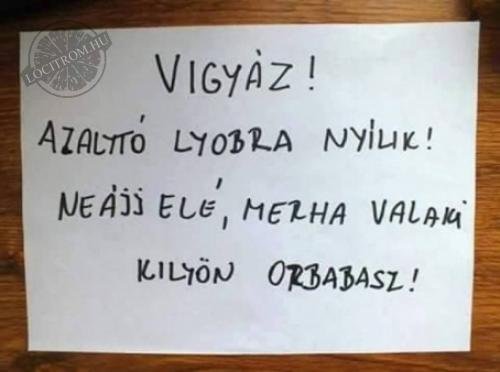 LOCITROM.HU
VIGYÁZ!
AZALYTÓ LYOBRA NYÍLIK!
NEÁJJ ELÉ, MERHA VALAKI
KILYÖN ORBABASZ!